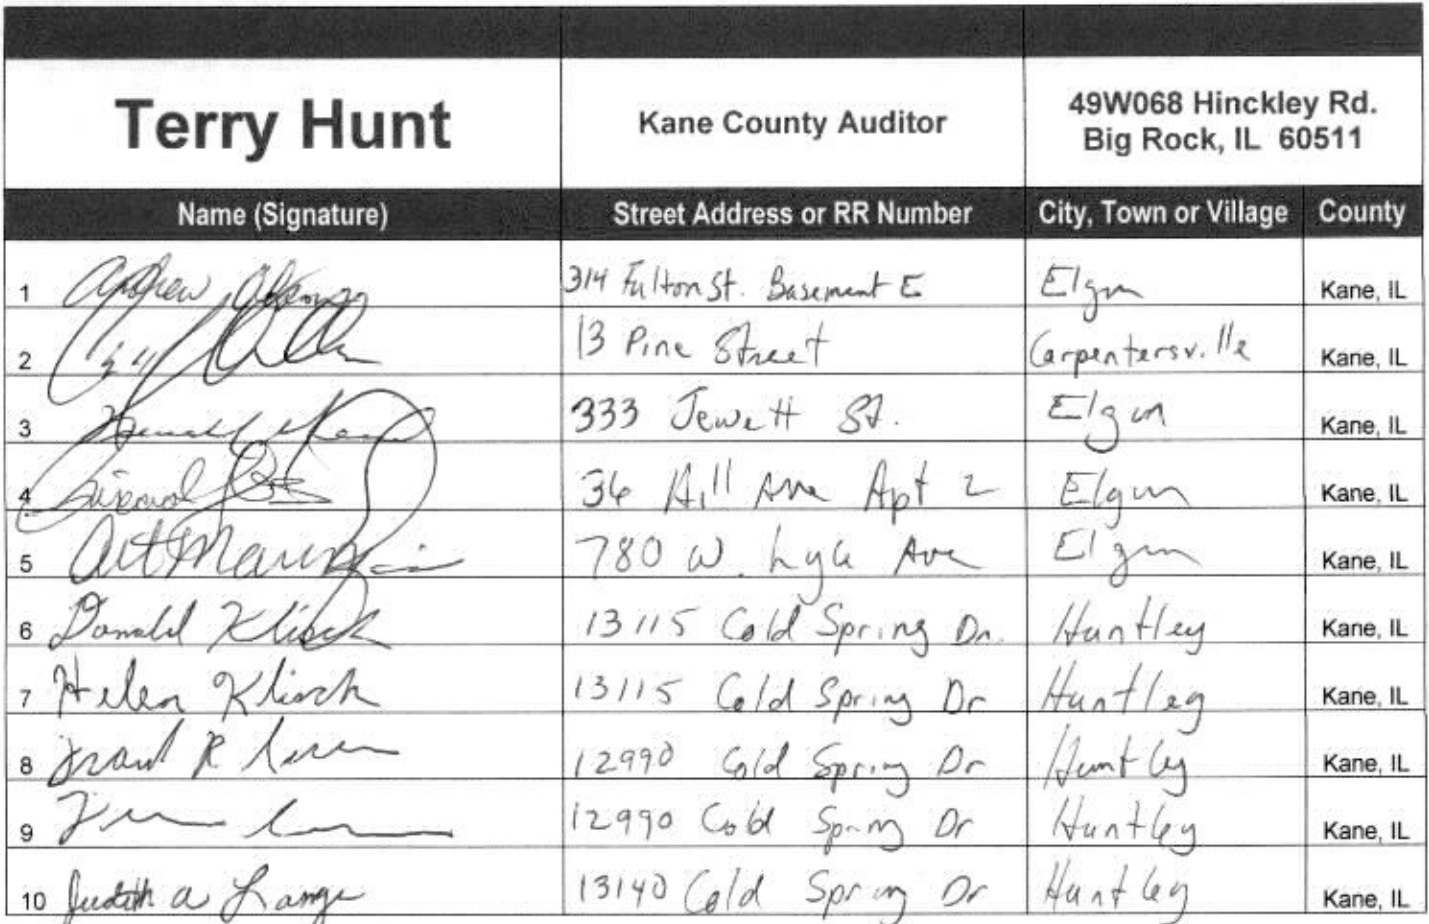 Terry Hunt Kane County Auditor 49W068 Hinckley Rd.
Big Rock, IL 60511
Name (Signature) Street Address or RR Number City, Town or Village County
1 Andrew 314 Fulton St. Basement E Elgin Kane, IL
2 13 Pine Street Carpentersville Kane, IL
3 333 Jewett St. Elgin Kane, IL
4 36 Hill Ave Apt 2 Elgin Kane, IL
5 Art 780 W. Lyle Ave Elgin Kane, IL
6 Donald Klisch 13115 Cold Spring Dr. Huntley Kane, IL
7 Helen Klisch 13115 Cold Spring Dr Huntley Kane, IL
8 R 12990 Cold Spring Dr Huntley Kane, IL
9 12990 Cold Spring Dr Huntley Kane, IL
10 Judith A Lange 13140 Cold Spring Dr Huntley Kane, IL